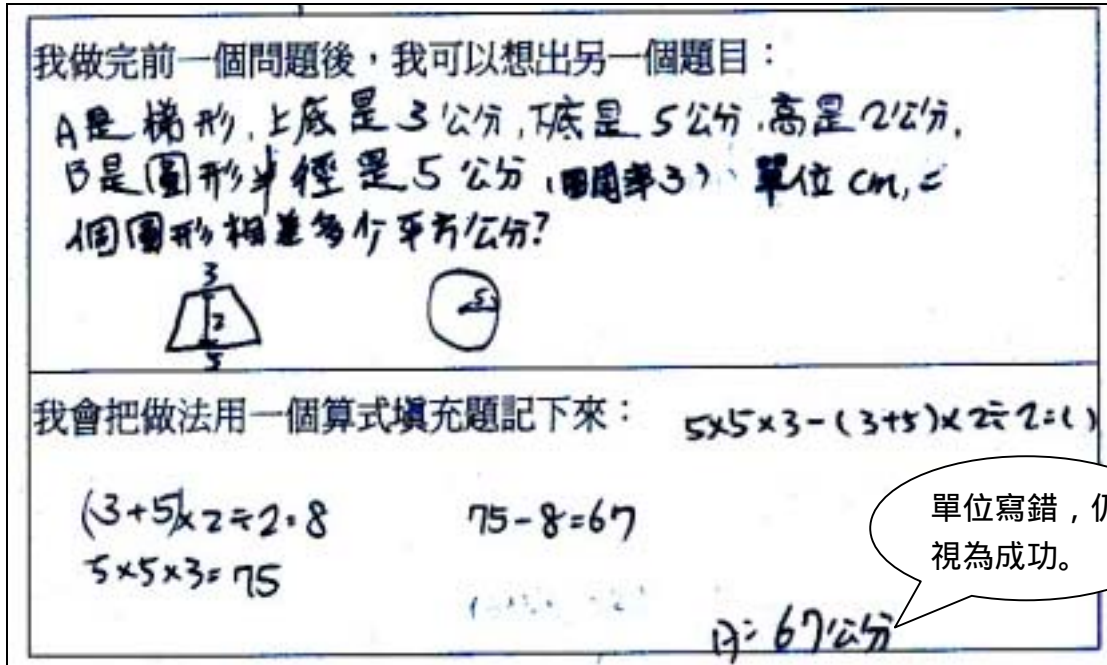 我做完前一個問題後,我可以想出另一個題目:
A是梯形,上底是3公分,下底是5公分,高是2公分,
B是圓形半徑是5公分(圓周率3)、單位cm,二
個圖形相差多少平方公分?
3
2
5
5
我會把做法用一個算式填充題記下來:
5×5×3-(3+5)×2÷2=( )
(3+5)×2÷2=8
75-8=67
5×5×3=75
單位寫錯,仍
視為成功。
A:67公分